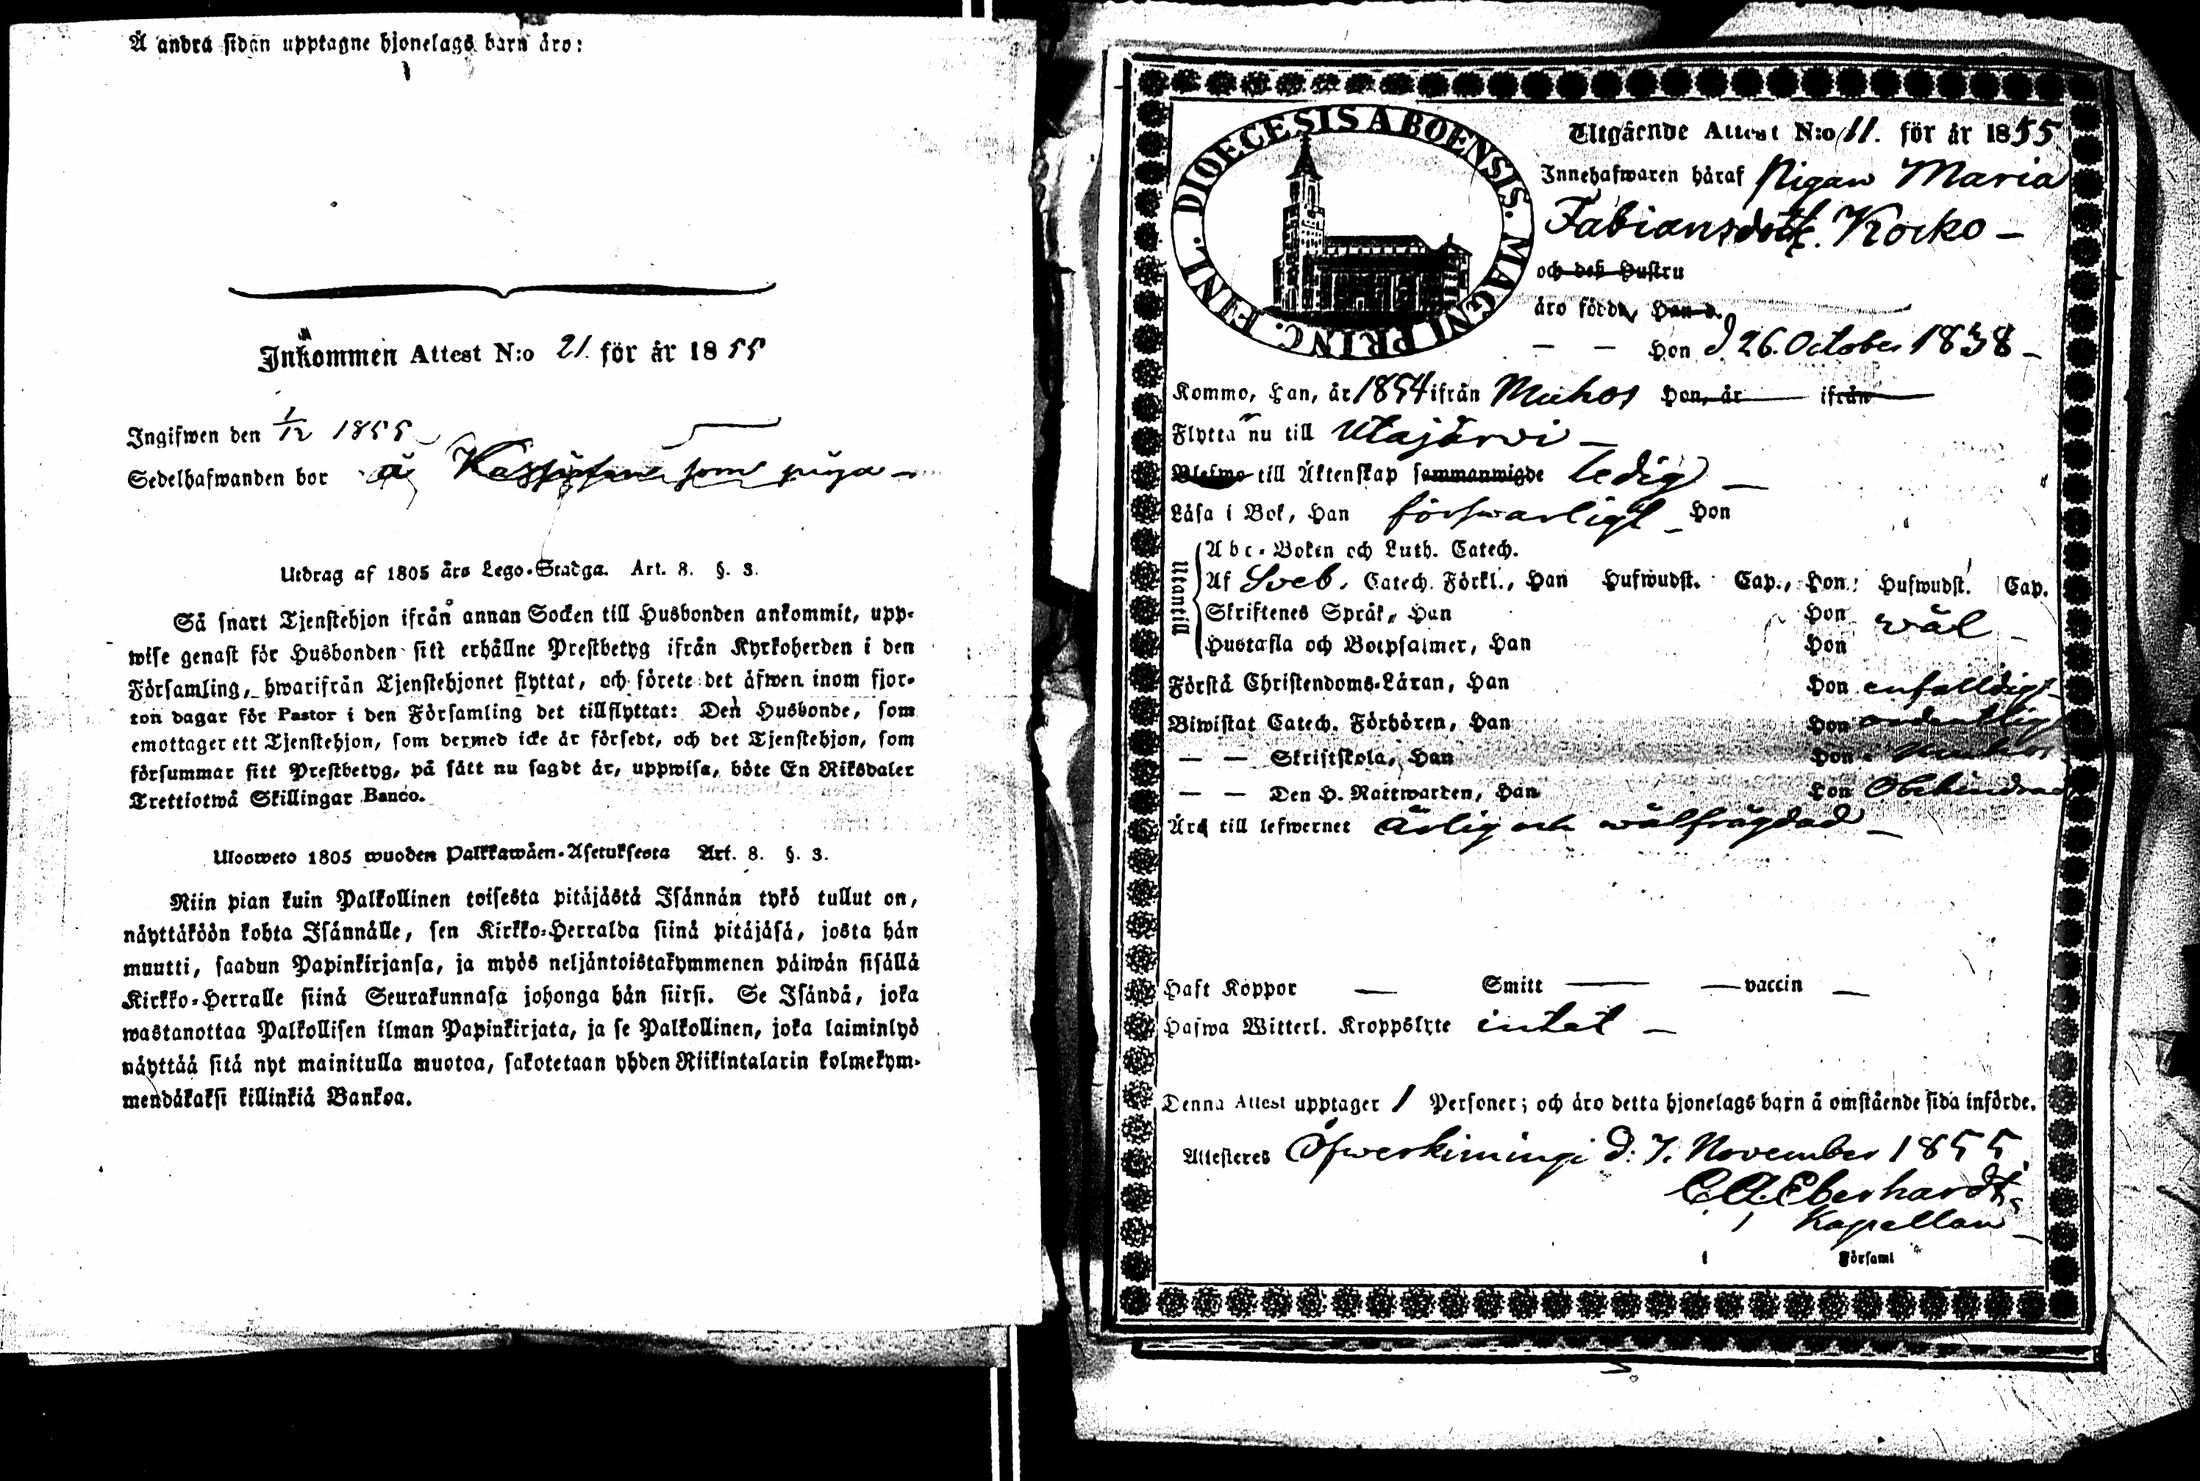 Å andra sidan upptagne hjonelags barn äro:
Inkommen Attest N:o 21. för år 1855
Ingifwen den 1/12 1855
Sedelhafwanden bor å som piga
Utdrag af 1805 års Lego-Stadga. Art. 8. §. 3.
Så snart Tjenstehjon ifrån annan Socken till Husbonden ankommit, upp-
wise genast för Husbonden sitt erhållne Prestbetyg ifrån Kyrkoherden i den
Församling, hwarifrån Tjenstehjonet flyttat, och förete det äfwen inom fjor-
ton dagar för Pastor i den Församling det tillflyttat: Den Husbonde, som
emottager ett Tjenstehjon, som dermed icke är försedt, och det Tjenstehjon, som
försummar sitt Prestbetyg, på sätt nu sagdt är, uppwisa, böte En Riksdaler
Trettiotwå Skillingar Banco.
Ulosweto 1805 wuoden Palkkawäen-Asetuksesta Art. 8. §. 3.
Niin pian kuin Palkollinen toisesta pitäjästä Isännän tykö tullut on,
näyttäköön kohta Isännälle, sen Kirkko-Herralda siinä pitäjäsä, josta hän
muutti, saadun Papinkirjansa, ja myös neljäntoistakymmenen päiwän sisällä
Kirkko-Herralle siinä Seurakunnasa johonga hän siirsi. Se Isändä, joka
wastanottaa Palkollisen ilman Papinkirjata, ja se Palkollinen, joka laiminlyö
näyttää sitä nyt mainitulla muotoa, sakotetaan yhden Riikintalarin kolmekym-
mendäkaksi killinkiä Bankoa.
DIOECESIS ABOENSIS. MAGNI PRINC. FINL.
Utgående Attest N:o 11. för år 1855
Innehafwaren häraf Pigan Maria
Fabiansdott. Kocko –
och deß Hustru
äro födde, Han d.
— — Hon d 26. October 1838 –
Kommo, Han, år 1854 ifrån Muhos Hon, år ifrån
Flytta nu till Utajärwi –
Blefwo till Äktenskap sammanwigde ledig –
Läsa i Bok, Han förswarligt – Hon
Utantill
Abc-Boken och Luth. Catech.
Af Sveb. Catech. Förkl., Han Hufwudst. Cap., Hon: Hufwudst. Cap.
Skriftenes Språk, Han Hon wäl –
Hustafla och Botpsalmer, Han Hon
Förstå Christendoms-Läran, Han Hon enfalldigt
Biwistat Catech. Förhören, Han Hon ordentligt
— — Skriftskola, Han Hon Muhos
— — Den H. Nattwarden, Han Hon Obehindrad
Äro till lefwernet ärlig och wälfrägdad –
Haft Koppor — Smitt — — vaccin —
Hafwa Witterl. Kroppslyte intet –
Denna Attest upptager 1 Personer; och äro detta hjonelags barn å omstående sida införde.
Attesteras Öfwerkiimingi d. 7. November 1855.
C. A. Eberhardt
Kapellan
i Församl